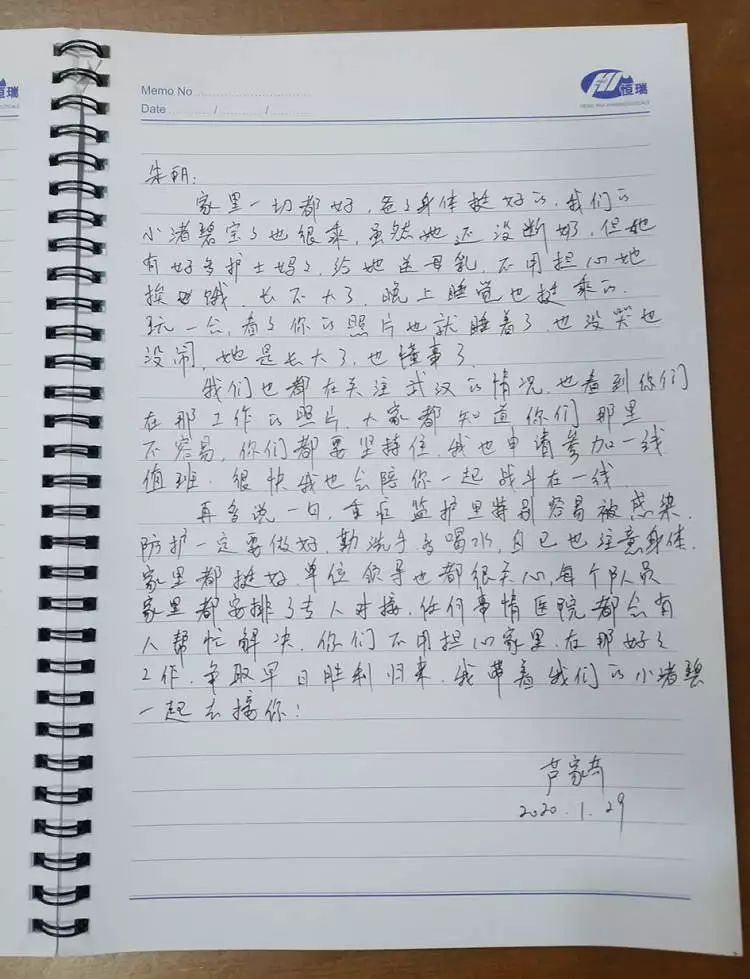 Memo No
Date / /
恒瑞
朱朝:
家里一切都好，爸爸身体挺好的，我们的
小渚碧宝宝也很乖，虽然她还没断奶，但她
有好多护士妈妈，给她送母乳，不用担心她
挨饿，长不大了，晚上睡觉也挺乖的。
玩一会，看看你的照片也就睡着了，也没哭也
没闹，她是长大了，也懂事了。
我们也都在关注武汉的情况，也看到你们
在那工作的照片，大家都知道你们那里
不容易，你们都要坚持住，我也申请参加一线
值班，很快我也会陪你一起战斗在一线。
再多说一句，重症监护里特别容易被感染
防护一定要做好，勤洗手多喝水，自己也注意身体。
家里都挺好单位领导也都很关心，每个队人员
家里都安排了专人对接，任何事情医院都会有
人帮忙解决，你们不用担心家里，在那好好
工作，争取早日胜利归来，我带着我们的小渚碧
一起去接你!
芦家
2020.1.29